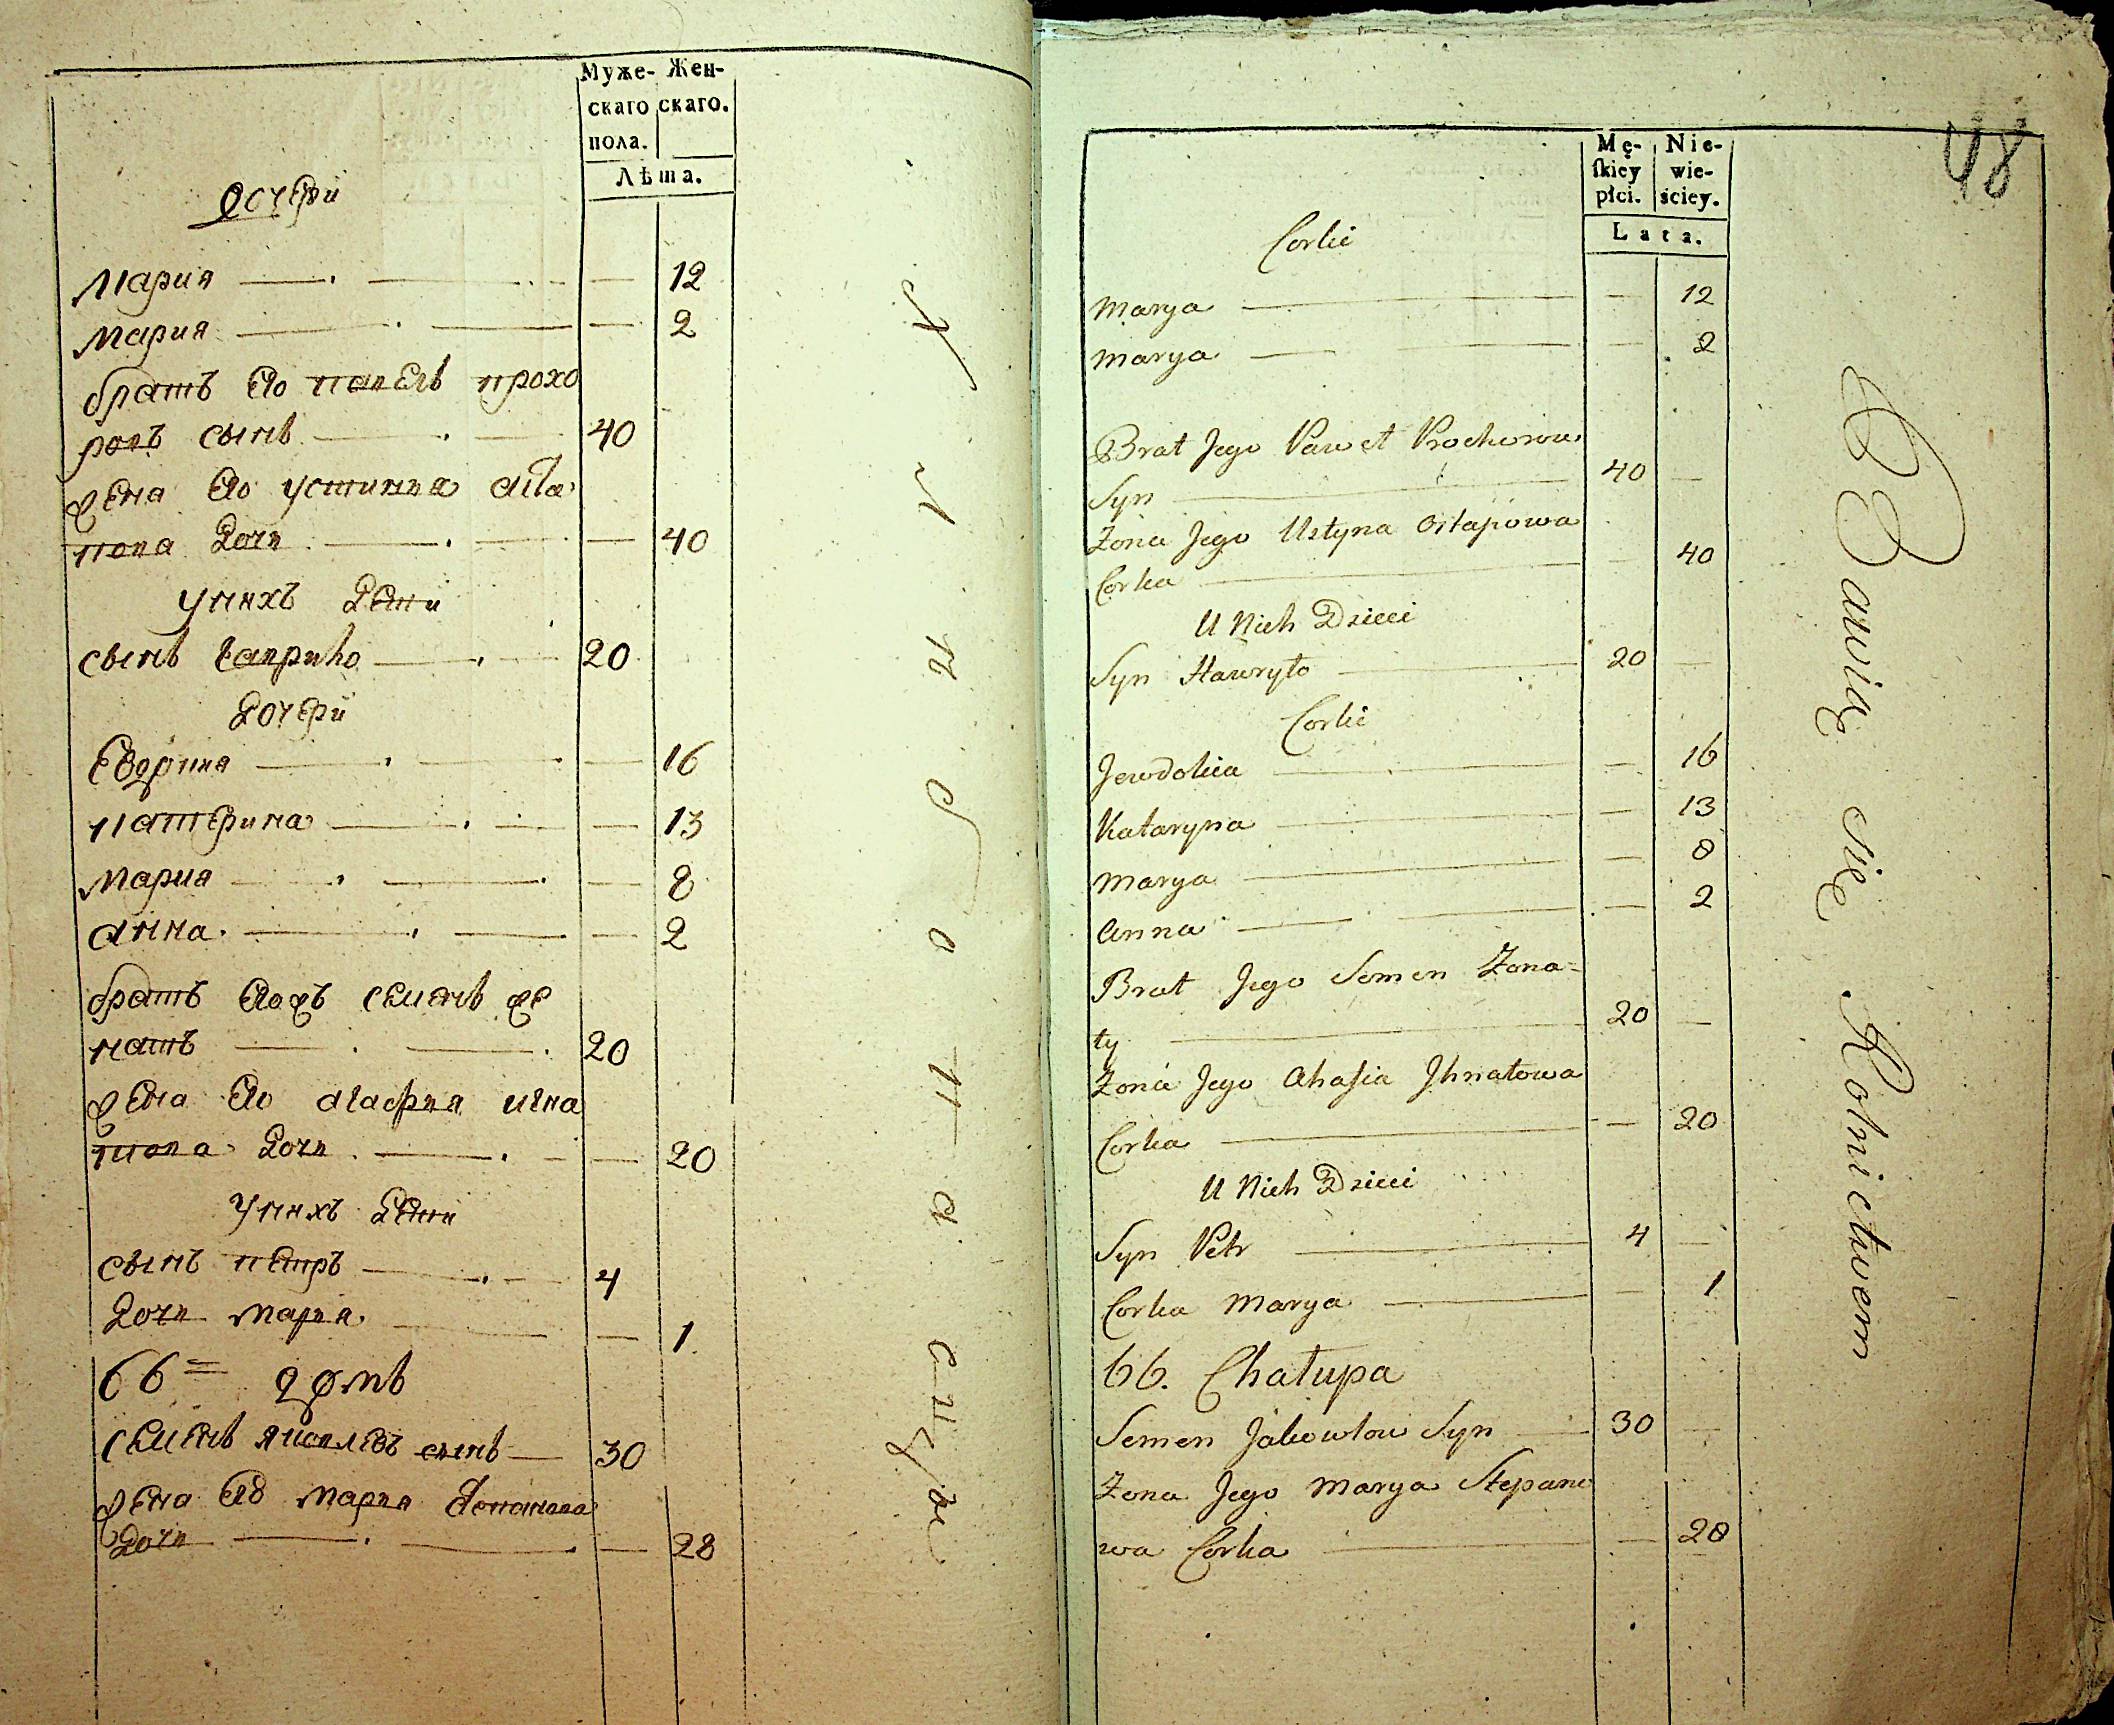 Муже- Жен-
скаго скаго.
пола.
Лѣта.
дочери
Мария 12
Мария 2
братъ его павелъ прохо
ровъ сынъ 40
жена его устиния аста
пова дочь 40
у нихъ дети
сынъ гаврило 20
дочери
16
катерина 13
Мария 8
анна 2
братъ егожъ семенъ же
натъ 20
жена его агафия игна
това дочь 20
у нихъ дети
сынъ петръ 4
дочь Мария 1
66 = домъ
семенъ яковлевъ сынъ 30
жена его Мария
дочь 28
48
Mę- Nie-
skiey wie-
płci. ściey.
Lata.
Corki
Marya 12
Marya 2
Brat Jego Paweł Prochorow
Syn 40
Żona Jego Ustyna Ostapowa
Corka 40
U Nich Dzieci
Syn Hawryło 20
Corki
Jewdokia 16
Kataryna 13
Marya 8
Anna 2
Brat Jego Semen Żona-
ty 20
Żona Jego Ahafia Jhnatowa
Corka 20
U Nich Dzieci
Syn Petr 4
Corka Marya 1
66. Chałupa
Semen Jakowlow Syn 30
Żona Jego Marya Stepano
wa Corka 28
Bawią się Rolnictwem